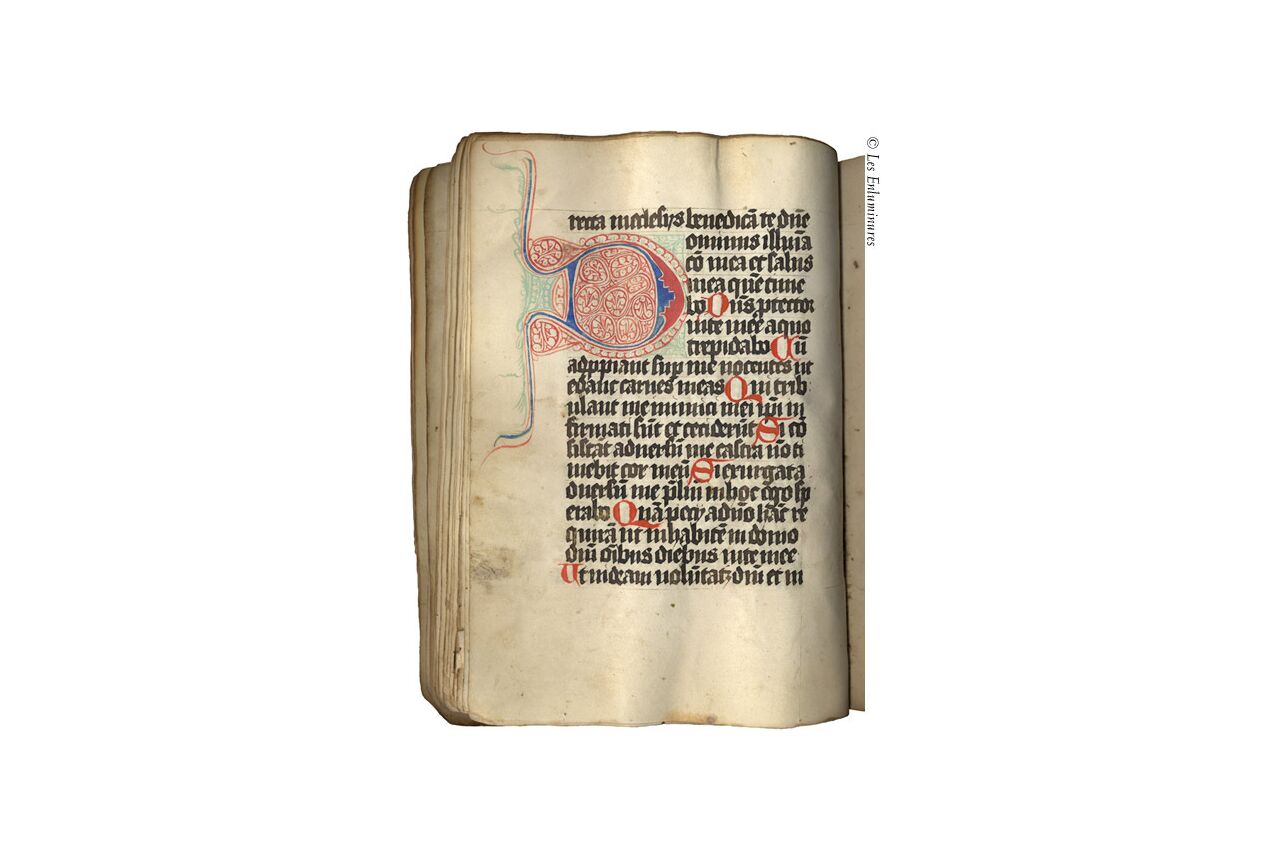 recta in ecclesijs benedicā te dn̄e
Dominus illuīa
cō mea et salus
mea quē time
bo Dn̄s ptector
uite mee a quo
trepidabo Cū
appp̄iant sup me nocentes ut
edant carnes meas Qui trib
ulant me inimici mei ip̄i in
firmati sūt et ceciderūt Si cō
sistāt aduersū me castra nō ti
mebit cor meū Si exurgat a
duersū me p̄liū in hoc ego sp
erabo Unā pecij a dn̄o hāc re
quirā ut inhabitē in domo
dn̄i oīb̄us diebus uite mee
Ut uideam uolūtatē dn̄i et ui
© Les Enluminures